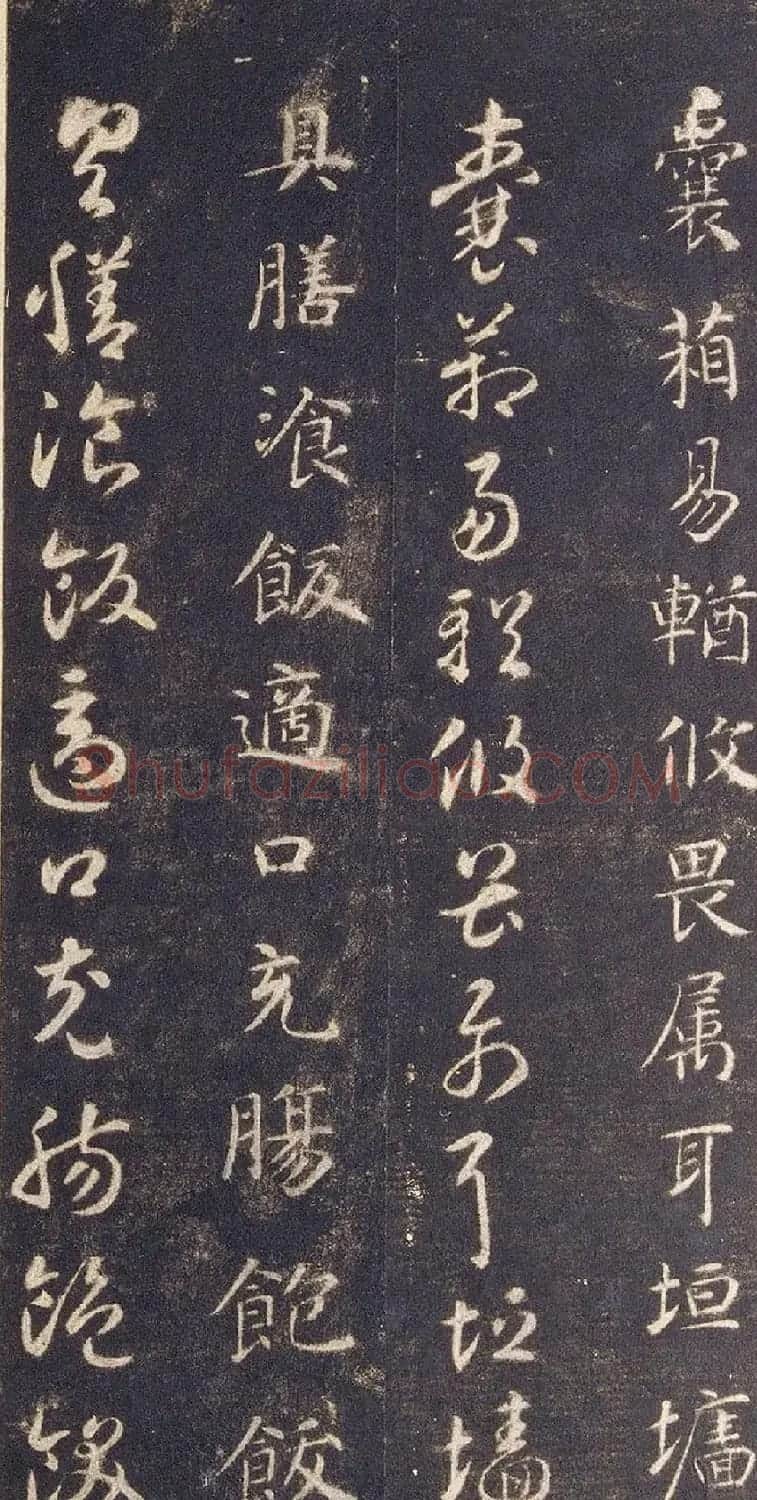 囊箱易輶攸畏属耳垣墻
囊箱易輶攸畏属耳垣墻
具膳湌飯適口充腸飽飫
具膳湌飯適口充腸飽飫
Shufaziliao.COM